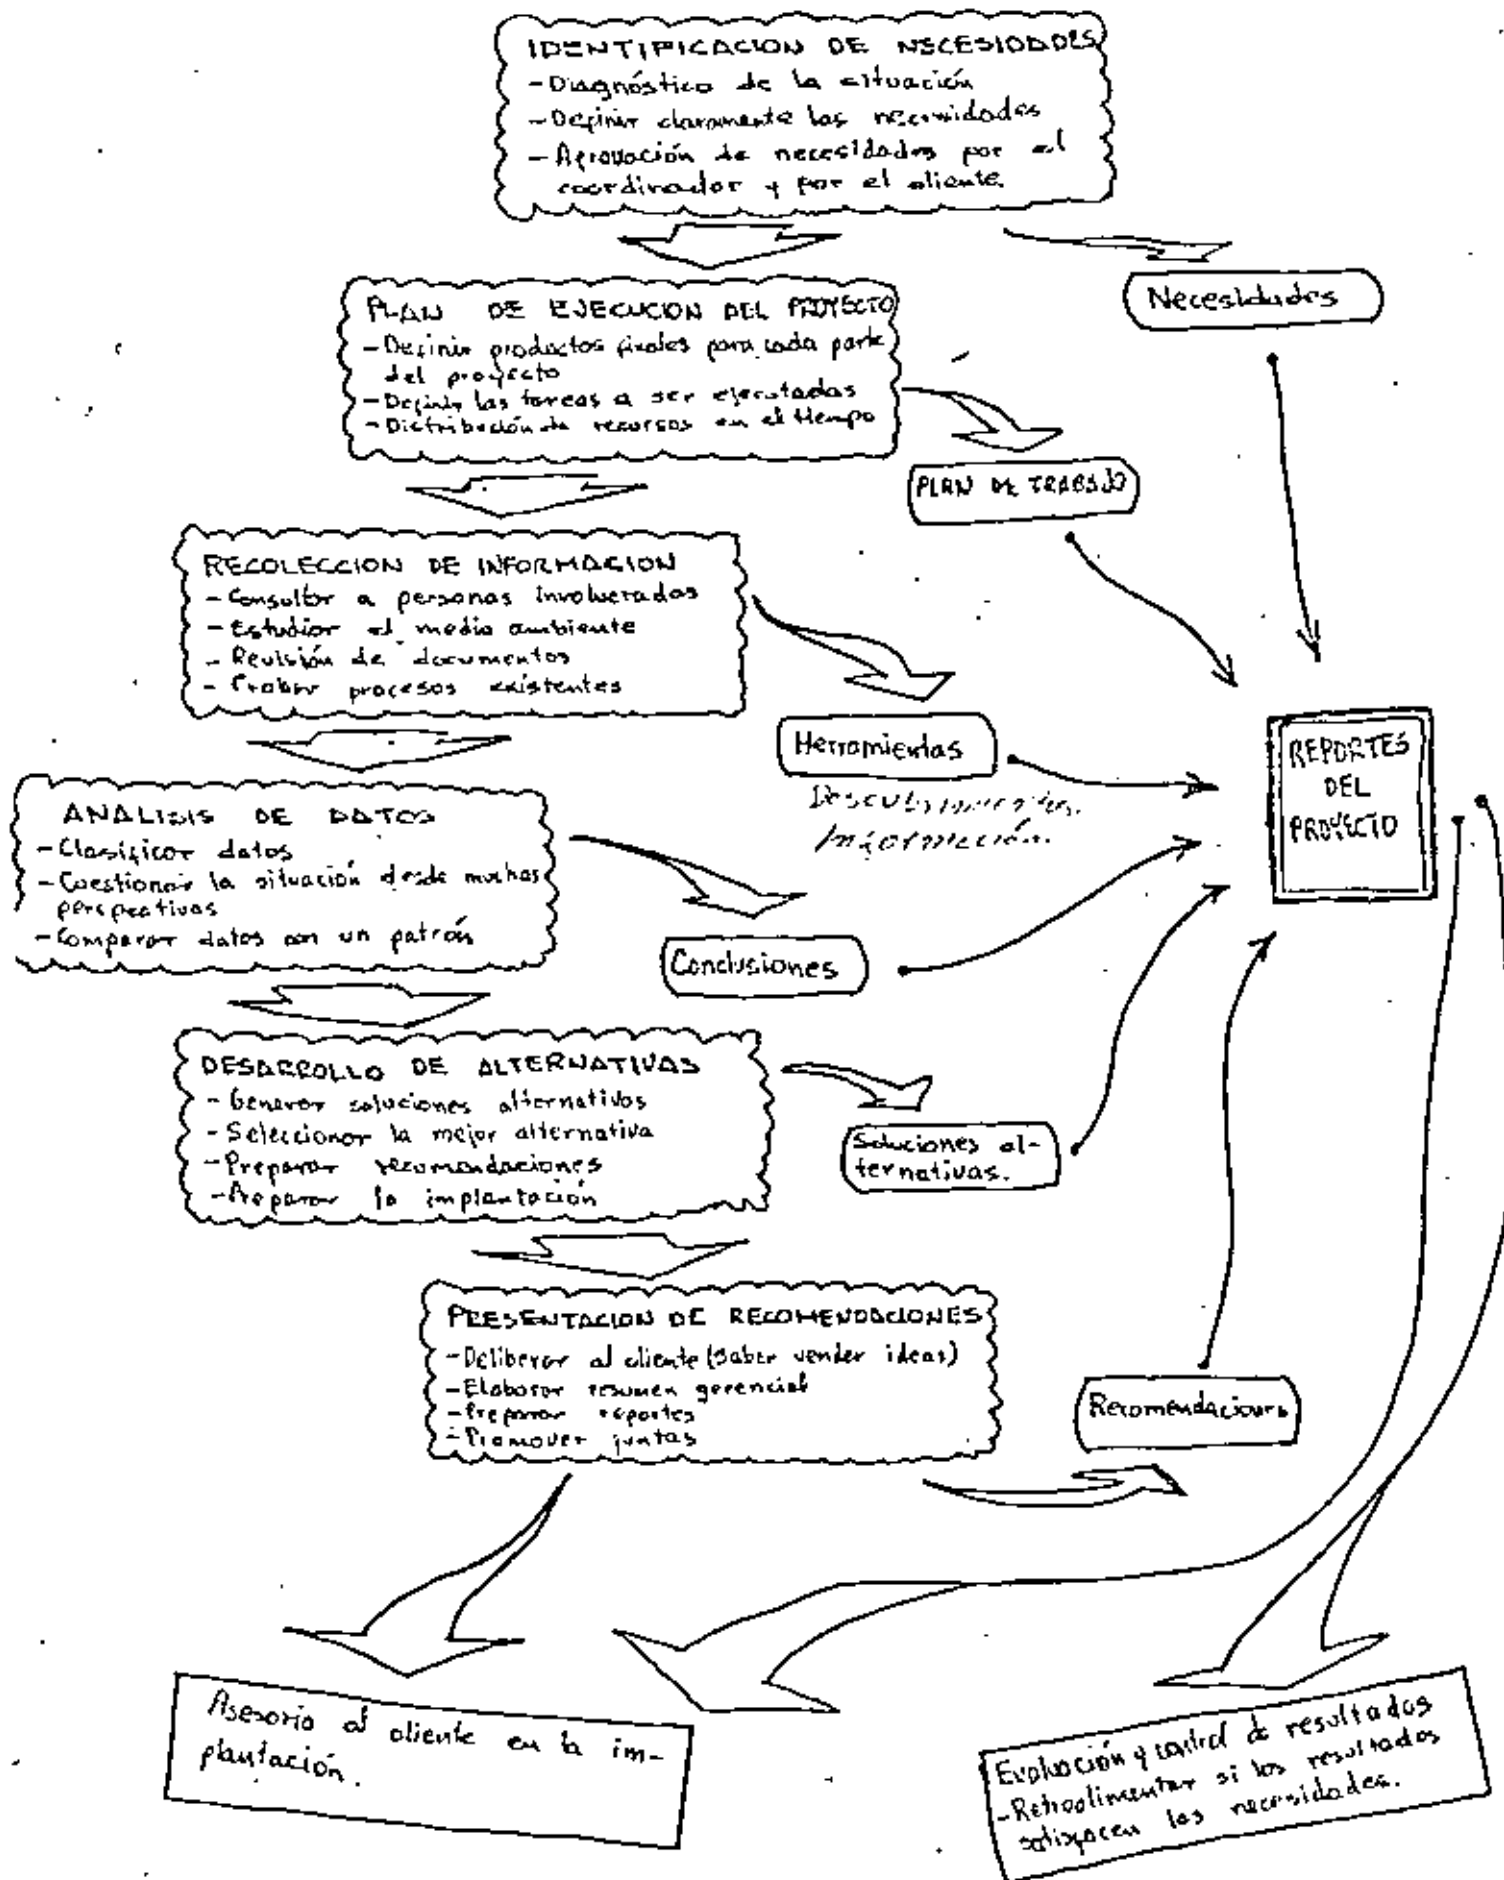 IDENTIFICACION DE NECESIDADES
- Diagnóstico de la situación
- Definir claramente las necesidades
- Aprovación de necesidades por el
coordinador y por el cliente.
Necesidades
PLAN DE EJECUCION DEL PROYECTO
- Definir productos finales para cada parte
del proyecto
- Definir las tareas a ser ejecutadas
- Distribución de recursos en el tiempo
PLAN DE TRABAJO
RECOLECCION DE INFORMACION
- Consultar a personas involucradas
- Estudiar el medio ambiente
- Revisión de documentos
- Probar procesos existentes
Herramientas
Descubrimientos.
Información.
REPORTES
DEL
PROYECTO
ANALISIS DE DATOS
- Clasificar datos
- Cuestionar la situación desde muchas
perspectivas
- Comparar datos con un patrón
Conclusiones
DESARROLLO DE ALTERNATIVAS
- Generar soluciones alternativas
- Seleccionar la mejor alternativa
- Preparar recomendaciones
- Preparar la implantación
Soluciones al-
ternativas.
PRESENTACION DE RECOMENDACIONES
- Deliberar al cliente (saber vender ideas)
- Elaborar resumen gerencial
- Preparar reportes
- Promover juntas
Recomendaciones
Asesoria al cliente en la im-
plantación.
Evaluación y control de resultados
- Retroalimentar si los resultados
satisfacen las necesidades.